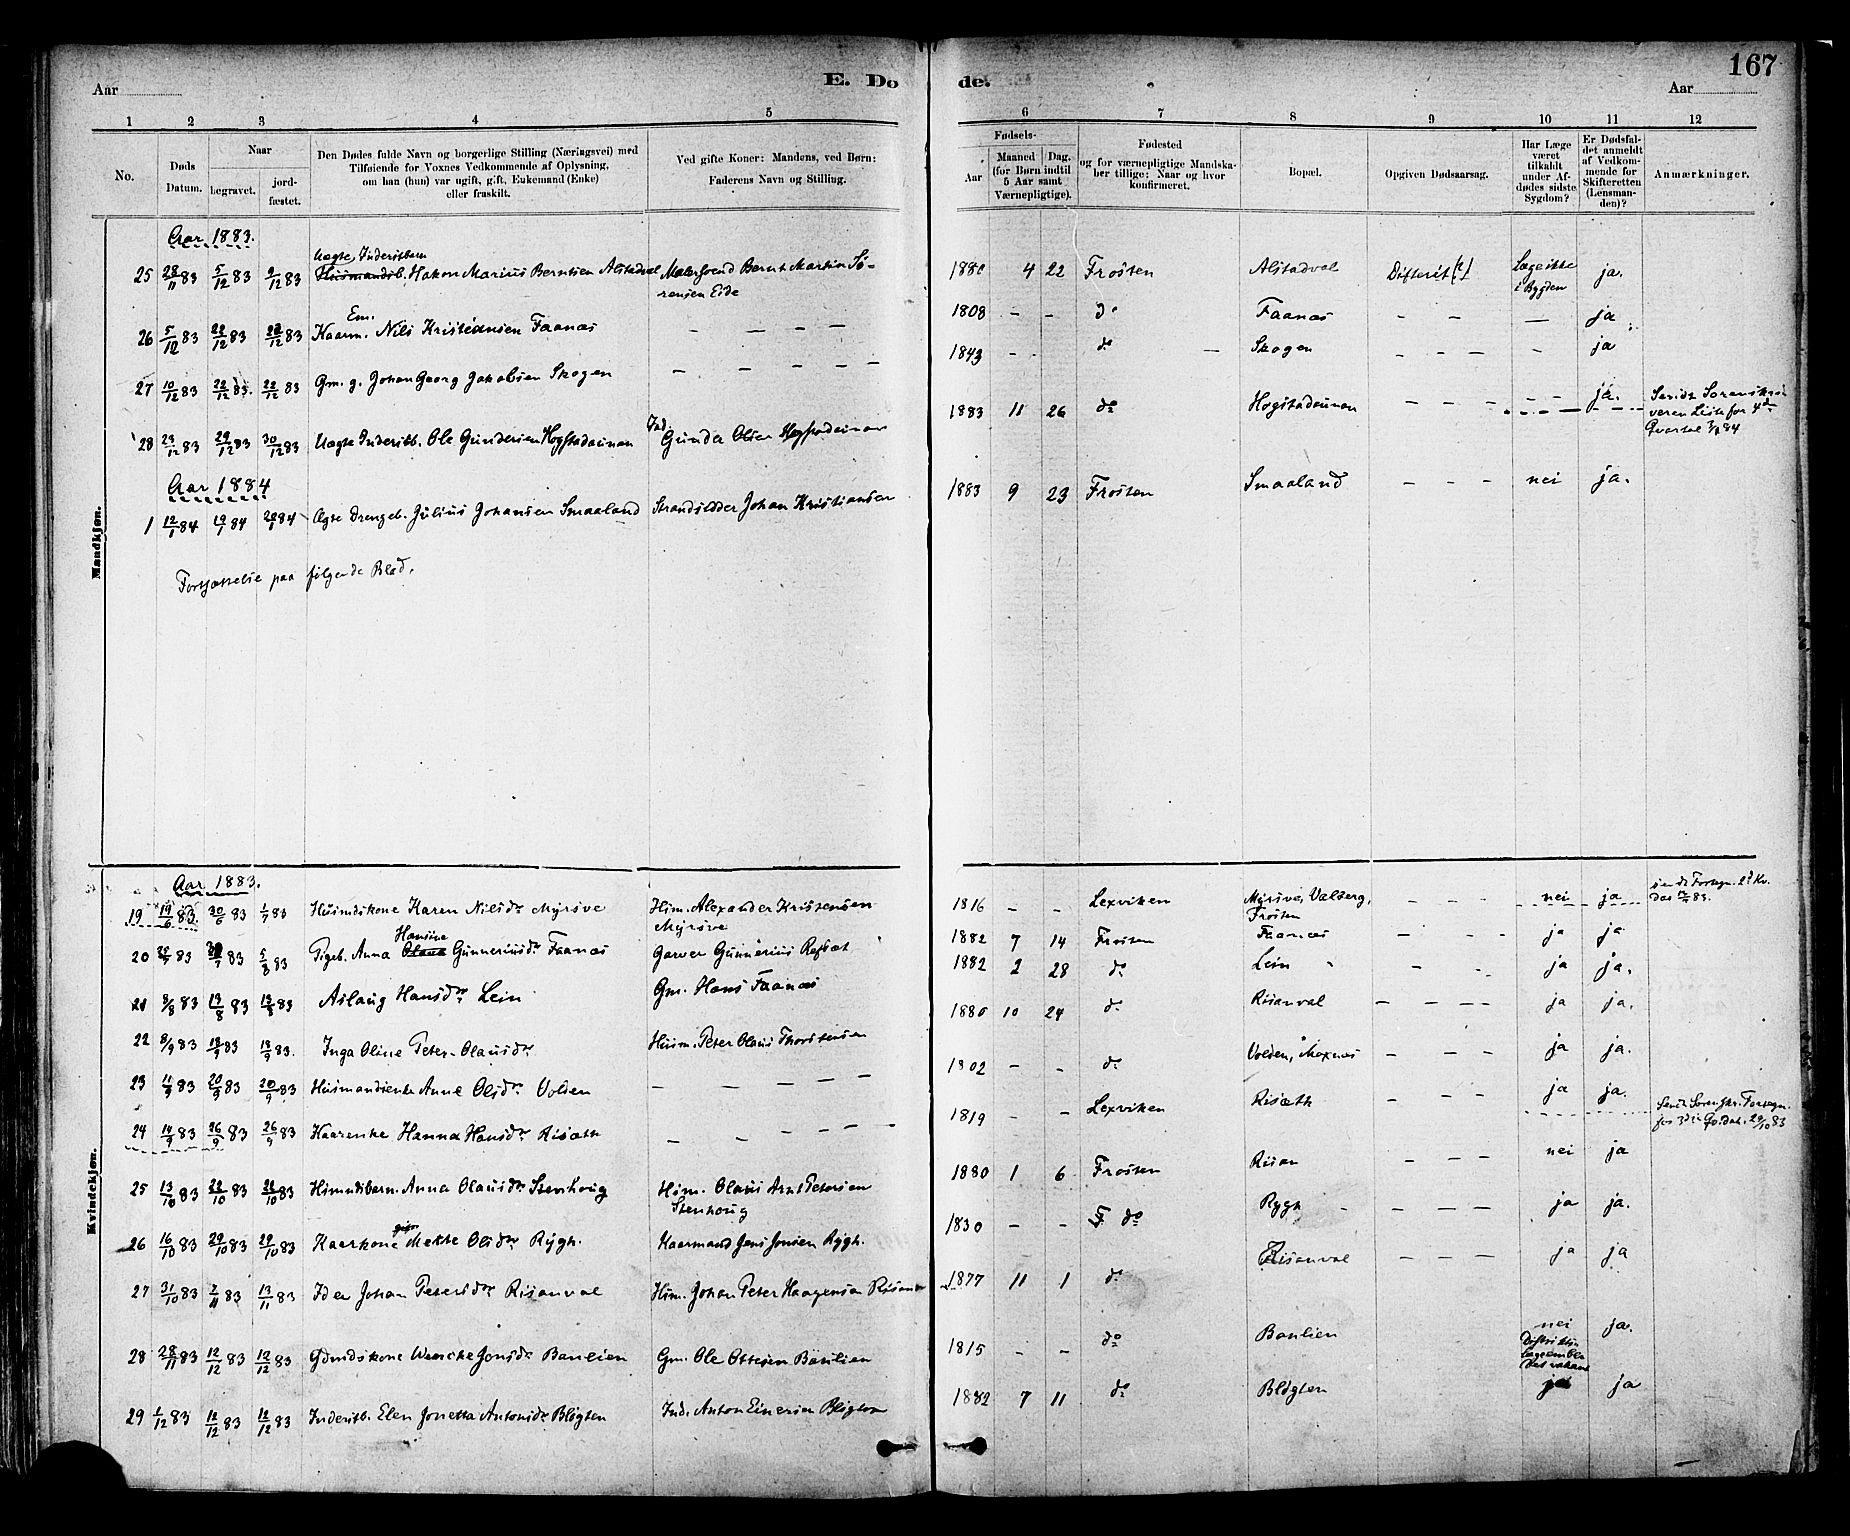 167
E. Dø de.
Aar
Aar
1 2 3 4 5 6 7 8 9 10 11 12
No.
Døds Datum.
Naar
begravet.
jord-fæstet.
Den Dødes fulde Navn og borgerlige Stilling (Næringsvei) med
Tilføiende for Voxnes Vedkommende af Oplysning,
om han (hun) var ugift, gift, Enkemand (Enke)
eller fraskilt.
Ved gifte Koner: Mandens, ved Børn:
Faderens Navn og Stilling.
Fødsels-
Aar
Maaned Dag.
(for Børn indtil
5 Aar samt
Værnepligtige).
Fødested
og for værnepligtige Mandska-
ber tillige: Naar og hvor
konfirmeret.
Bopæl.
Opgiven Dødsaarsag.
Har Læge
været
tilkaldt
under Af-
dødes sidste
Sygdom?
Er Dødsfal-
det anmeldt
af Vedkom-
mende for
Skifteretten
(Lensman-
den)?
Anmærkninger.
Mandkjøn.
Aar 1883.
Uægte Inderstbarn
25 28/11 83 5/12 83 9/12 83 Husmandsb. Hakon Marius Berntsen Alstadval Malersvend Bernt Martin Sö-
rensen Eide
4 22 Frosten Alstadval Difterit (?) Læge ikke i Bygden ja.
26 5/12 83 22/12 83 22/12 83 Em. Kaarm. Nils Kristiansen Faanæs – – – –
1808 – – do Faanæs – – – ja
27 10/12 83 22/12 83. 22/12 83 Gm. g. Johan Georg Jakobsen Skogen – – – –
1843 – – do – Skogen – – – – ja
28 23/12 83 29/12 83 30/12 83 Uægte Inderstb. Ole Gundersen Hogstadaunan Ind. Gunder Olsen Hogstadaunan
1883 11 26 do Hogstadaunan – – – – – ja. Sendt Sorenskri-
veren Liste for 4de
Qvartal 84
Aar 1884
1 12/1 84 19/1 84 20/1 84 Ægte Drengeb. Julius Johansen Smaaland Strandsidder Johan Kristiansen
1883 9 23 Frosten Smaaland – – – nei ja.
Fortsættelse paa følgende Blad.
Kvindekjøn.
Aar 1883.
19 19/6 83. 30/6 83 1/7 83 Husmdskone Karen Nilsdr. Myrsve Hsm. Alexander Kristensen
Myrsve
1816 – – Lexviken Myrsve, Valberg,
Frosten
nei ja
20 83 83 5/8 83 Pigeb. Anna Olava Hansine Gunneriusdr. Faanæs Garver Gunnerius Refsæt
1882 7 14 Frosten Faanæs – – – ja ja
21 8/8 83 19/8 83 19/8 83 Aslaug Hansdr. Lein Gm. Hans Faanæs
1882 2 28 do Lein – – ja ja.
22 8/9 83 18/9 83 18/9 83. Inga Oline Peter-Olausdr. Husm. Peter Olaus Thorstensen
1880 10 24 do Risanval – – – – ja ja.
23 11/9 83 20/9 83 20/9 83 Husmandsenke Anne Olsdr. Volden – – – – –
1802 – – do Volden, Moxnæs – – – ja ja.
24 14/9 83 26/9 83 26/9 83 Kaarenke Hanna Hansdr. Risæth – – – – –
1819 – – Lexviken Risæth – – – ja ja. Sendt Sorenskr. Fortegn.
for 3die Qv. dat. 20/10 83
25 13/10 83 22/10 83 22/10 83 Husmdsbarn. Anna Olausdr. Stenhoug Husm. Olaus Arnt Petersen
Stenhoug
1880 1 6 Frosten Risan – – – nei ja
26 16/10 83 29/10 83 29/10 83 Kaarkone Mette Olsdr. Rygh. Kaarmand Jens Jonsen Rygh.
1830 – – do Rygh – – – – ja ja.
27 31/10 83 2/11 83 13/11 83 Ider Johan Petersdr. Risanval Hsm. Johan Peter Haagensen Risanv
1877 11 1 do Risanval – – – ja ja
28 28/11 83 12/12 83 12/12 83 Gdmdskone Wencke Jonsdr. Baulien Gm. Ole Ottesen Baulien
1815 – – do Baulien nei
Distrikts-
lægeembe-
det vakant
ja.
29 1/12 83 12/12 83 12/12 83 Inderstb. Elen Jonetta Antonsdr. Bligten Ind. Anton Einersen Bligten
1882 7 11 do Bligten ja ja